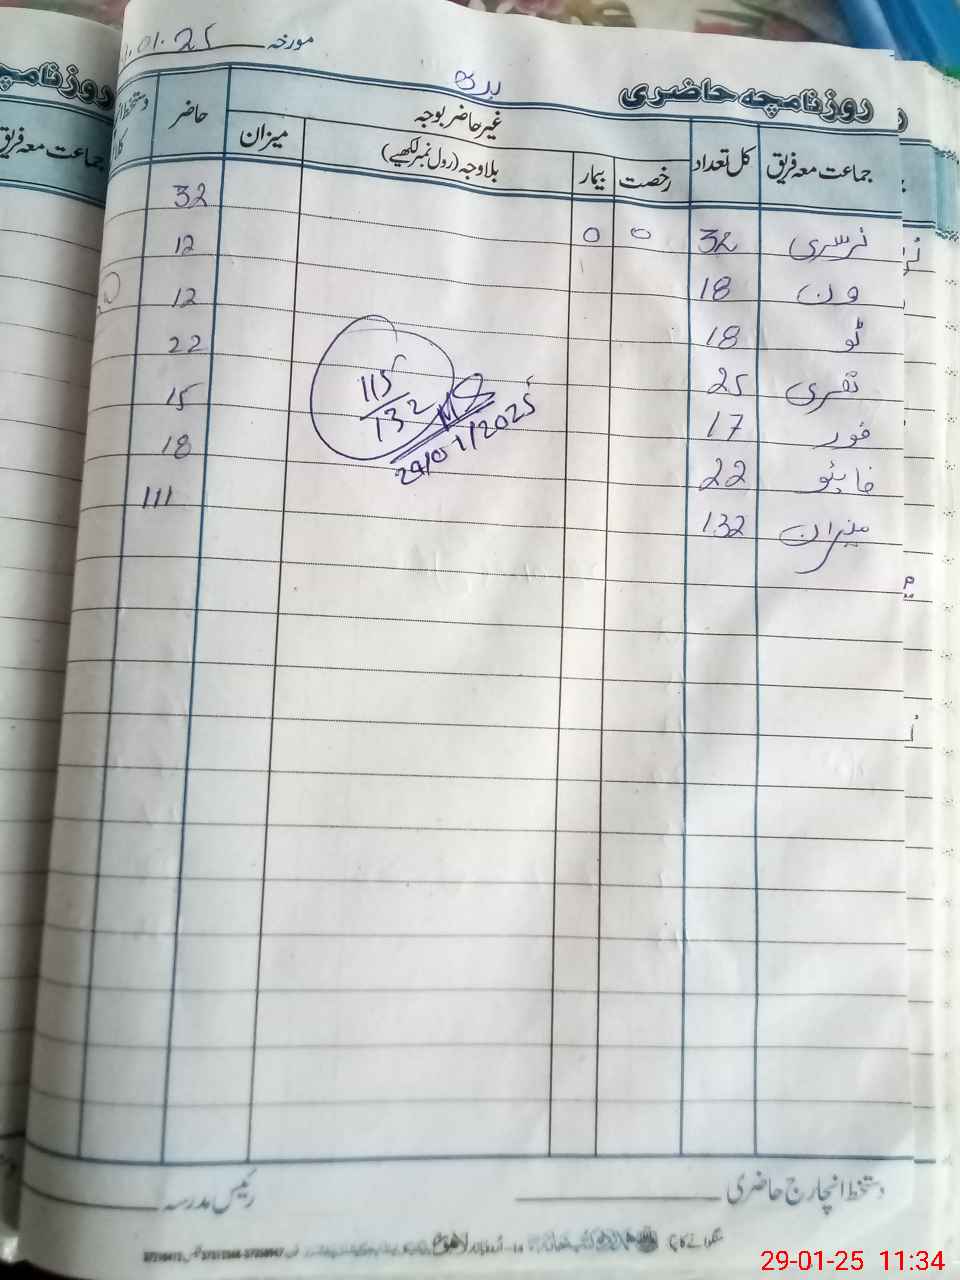 مورخہ 01.25
بدھ
روزنامچہ حاضری
جماعت معہ فریق کل تعداد غیر حاضر بوجہ حاضر
رخصت بیمار بلاوجہ (رول نمبر لکھیے) میزان
نرسری 32 0 0 32
ون 18 12
ٹو 18 12
تھری 25 22
فور 17 15
فائیو 22 18
میزان 132 111
115
132
29/01/2025
دستخط انچارج حاضری
رئیس مدرسہ
29-01-25 11:34
روزنامچہ
جماعت معہ فریق